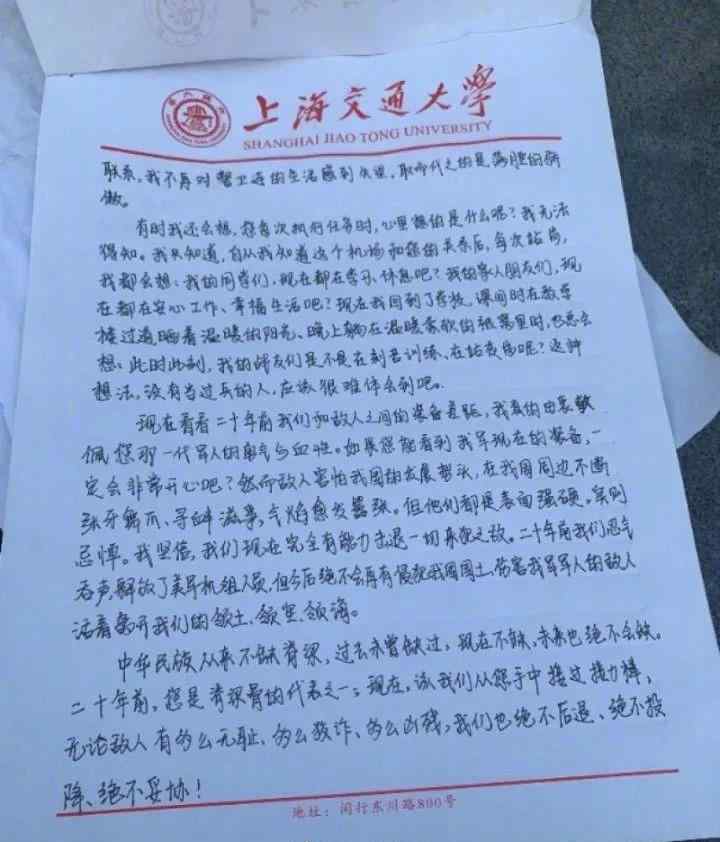 上海交通大学
SHANGHAI JIAO TONG UNIVERSITY
联系,我不再对警卫连的生活感到失望,取而代之的是满腔的骄
傲。
有时我还会想,您首次执行任务时,心里想的是什么呢?我无法
得知。我只知道,自从我知道这个机场和您的关系后,每次站岗,
我都会想:我的同学们,现在都在学习、休息吧?我的家人朋友们,现
在都在安心工作、幸福生活吧?现在我回到了学校,课间时在教学
楼过道晒着温暖的阳光、晚上躺在温暖柔软的被窝里时,也总会
想:此时此刻,我的战友们是不是在刻苦训练、在站夜岗呢?这种
想法,没有当过兵的人,应该很难体会到吧。
现在看看二十年前我们和敌人之间的装备差距,我真的由衷敬
佩您那一代军人的勇气与血性。如果您能看到我军现在的装备,一
定会非常开心吧?然而敌人害怕我国的发展势头,在我国周边不断
张牙舞爪、寻衅滋事,气焰愈发嚣张。但他们都是表面强硬,实则
忌惮。我坚信,我们现在完全有能力击退一切来犯之敌。二十年前我们忍气
吞声,解放了美军机组人员,但今后绝不会再有侵犯我国国土、伤害我军军人的敌人
活着离开我们的领土、领空、领海。
中华民族从来不缺脊梁,过去未曾缺过,现在不缺,未来也绝不会缺。
二十年前,您是脊梁骨的代表之一;现在,该我们从您手中接过接力棒,
无论敌人有多么无耻、多么狡诈、多么凶残,我们也绝不后退、绝不投
降、绝不妥协!
地址:闵行东川路800号